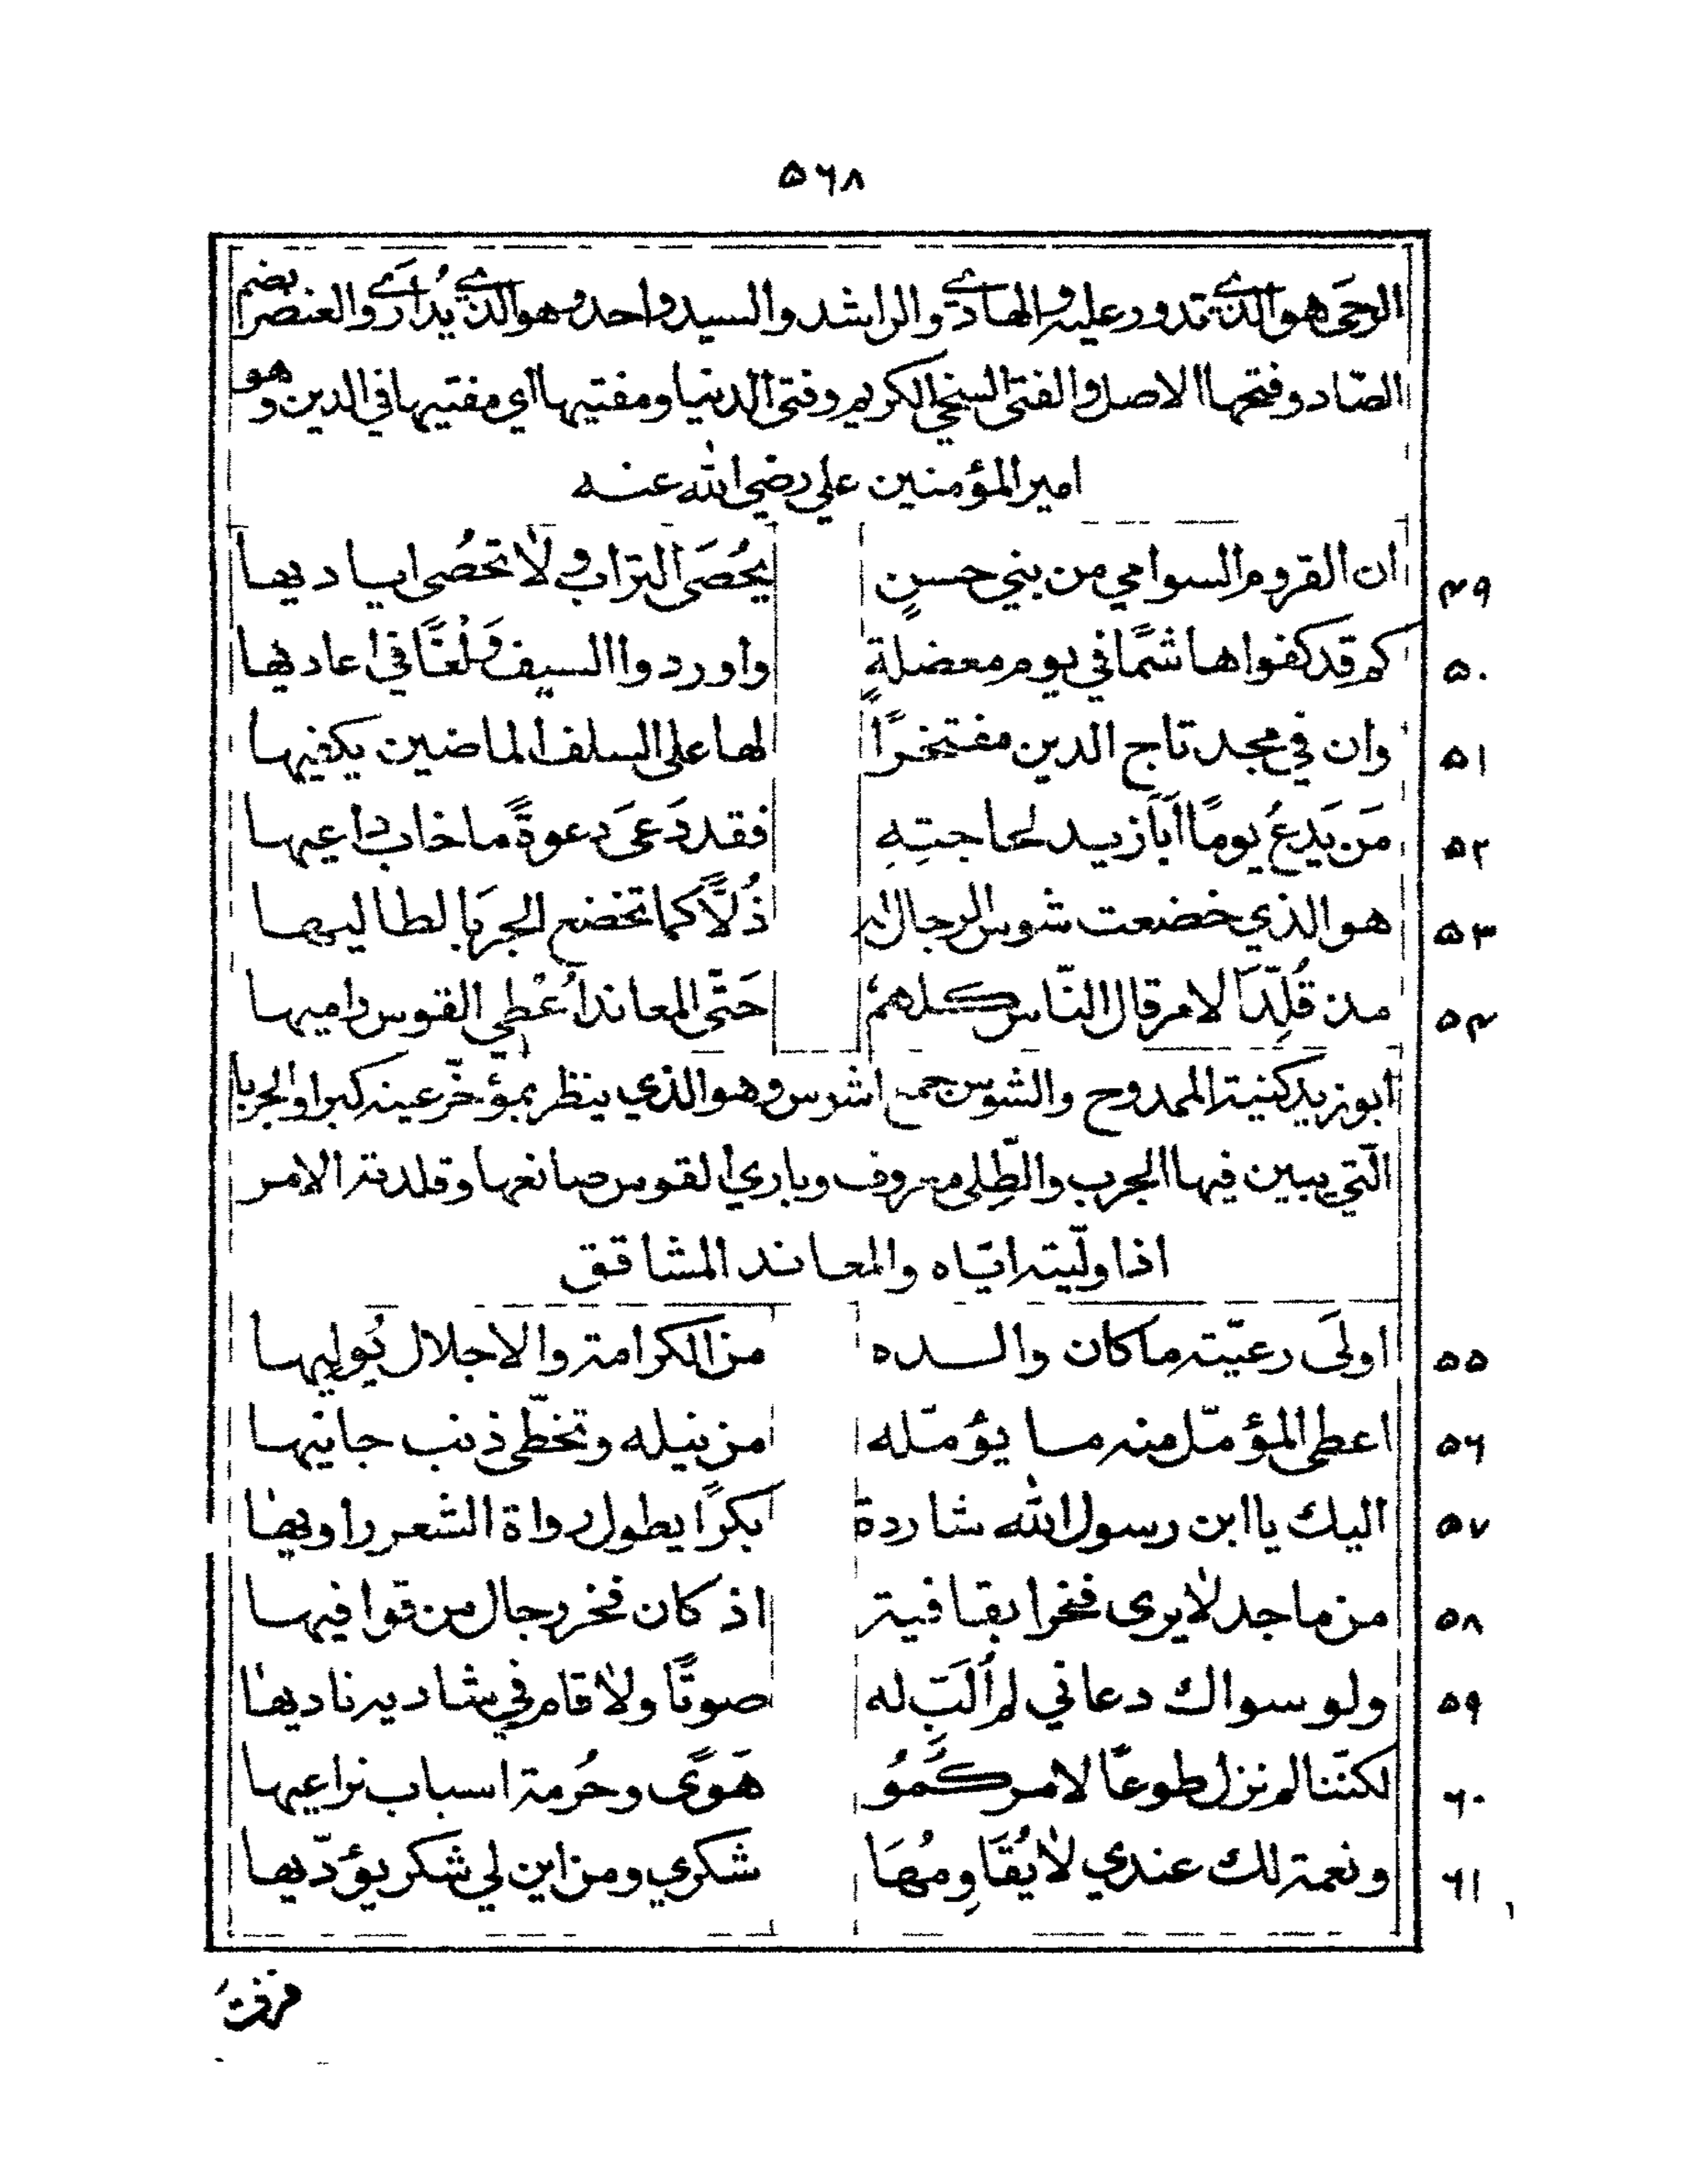 ۵۶۸
الرحى هو الذي تدور عليه والهادي والراشد والسيد واحد وهو الذي يُدارَى والعنصر بضم
الصّاد وفتحها الاصل والفتى السخي الكريم وفتى الدنيا ومفتيها اي مفتيها في الدين وهو
امير المؤمنين علي رضي الله عنه
۴۹ ان القروم السوامي من بني حسنٍ يُحصَى التراب ولا تحصُى اياديها
۵۰ كم قد كفوا هاشمًا في يوم معضلةٍ واوردوا السيف وَلْغًا في اعاديها
۵۱ وان في مجد تاج الدين مفتخرًا لها على السلف الماضين يكفيها
۵۲ مَن يَدعُ يومًا أبَا زيد لحاجتِهِ فقد دَعَى دعوةً ما خاب داعيها
۵۳ هو الذي خضعت شوس الرجال له ذُلاًّ كما تخضع الجربَا لطاليها
۵۴ مذ قُلِّدَ الامر قال النّاس كلهمُ حَتّى المعاند أُعْطي القوس راميها
ابو زيد كنية الممدوح والشوس جمع اشوس وهو الذي ينظر بمؤخّر عينه كبرا والجربا
الّتي يبين فيها الجرب والطّلى معروف وباري القوس صانعها وقلدته الامر
اذا ولّيته ايّاه والمعاند المشاقق
۵۵ اولَى رعيّته ما كان والده من الكرامة والاجلال يُوليها
۵۶ اعطى المؤمّل منه ما يؤمّله من نيله وتخطّى ذنب جانيها
۵۷ اليك يا ابن رسول الله شاردة بكرًا يطول رواة الشعر راويها
۵۸ من ماجد لا يرى فخرا بقافية اذ كان فخر رجال من قوافيها
۵۹ ولو سواك دعاني لم أُلَبِّ له صوتًا ولا قام في شاديه ناديها
۶۰ لكنّنا لم نزل طوعًا لامركُمُو هَوًى وحُرمة اسباب نراعيها
۶۱ ونعمة لك عندي لا يُقَاوِمُهَا شكري ومن اين لي شكر يؤدّيها